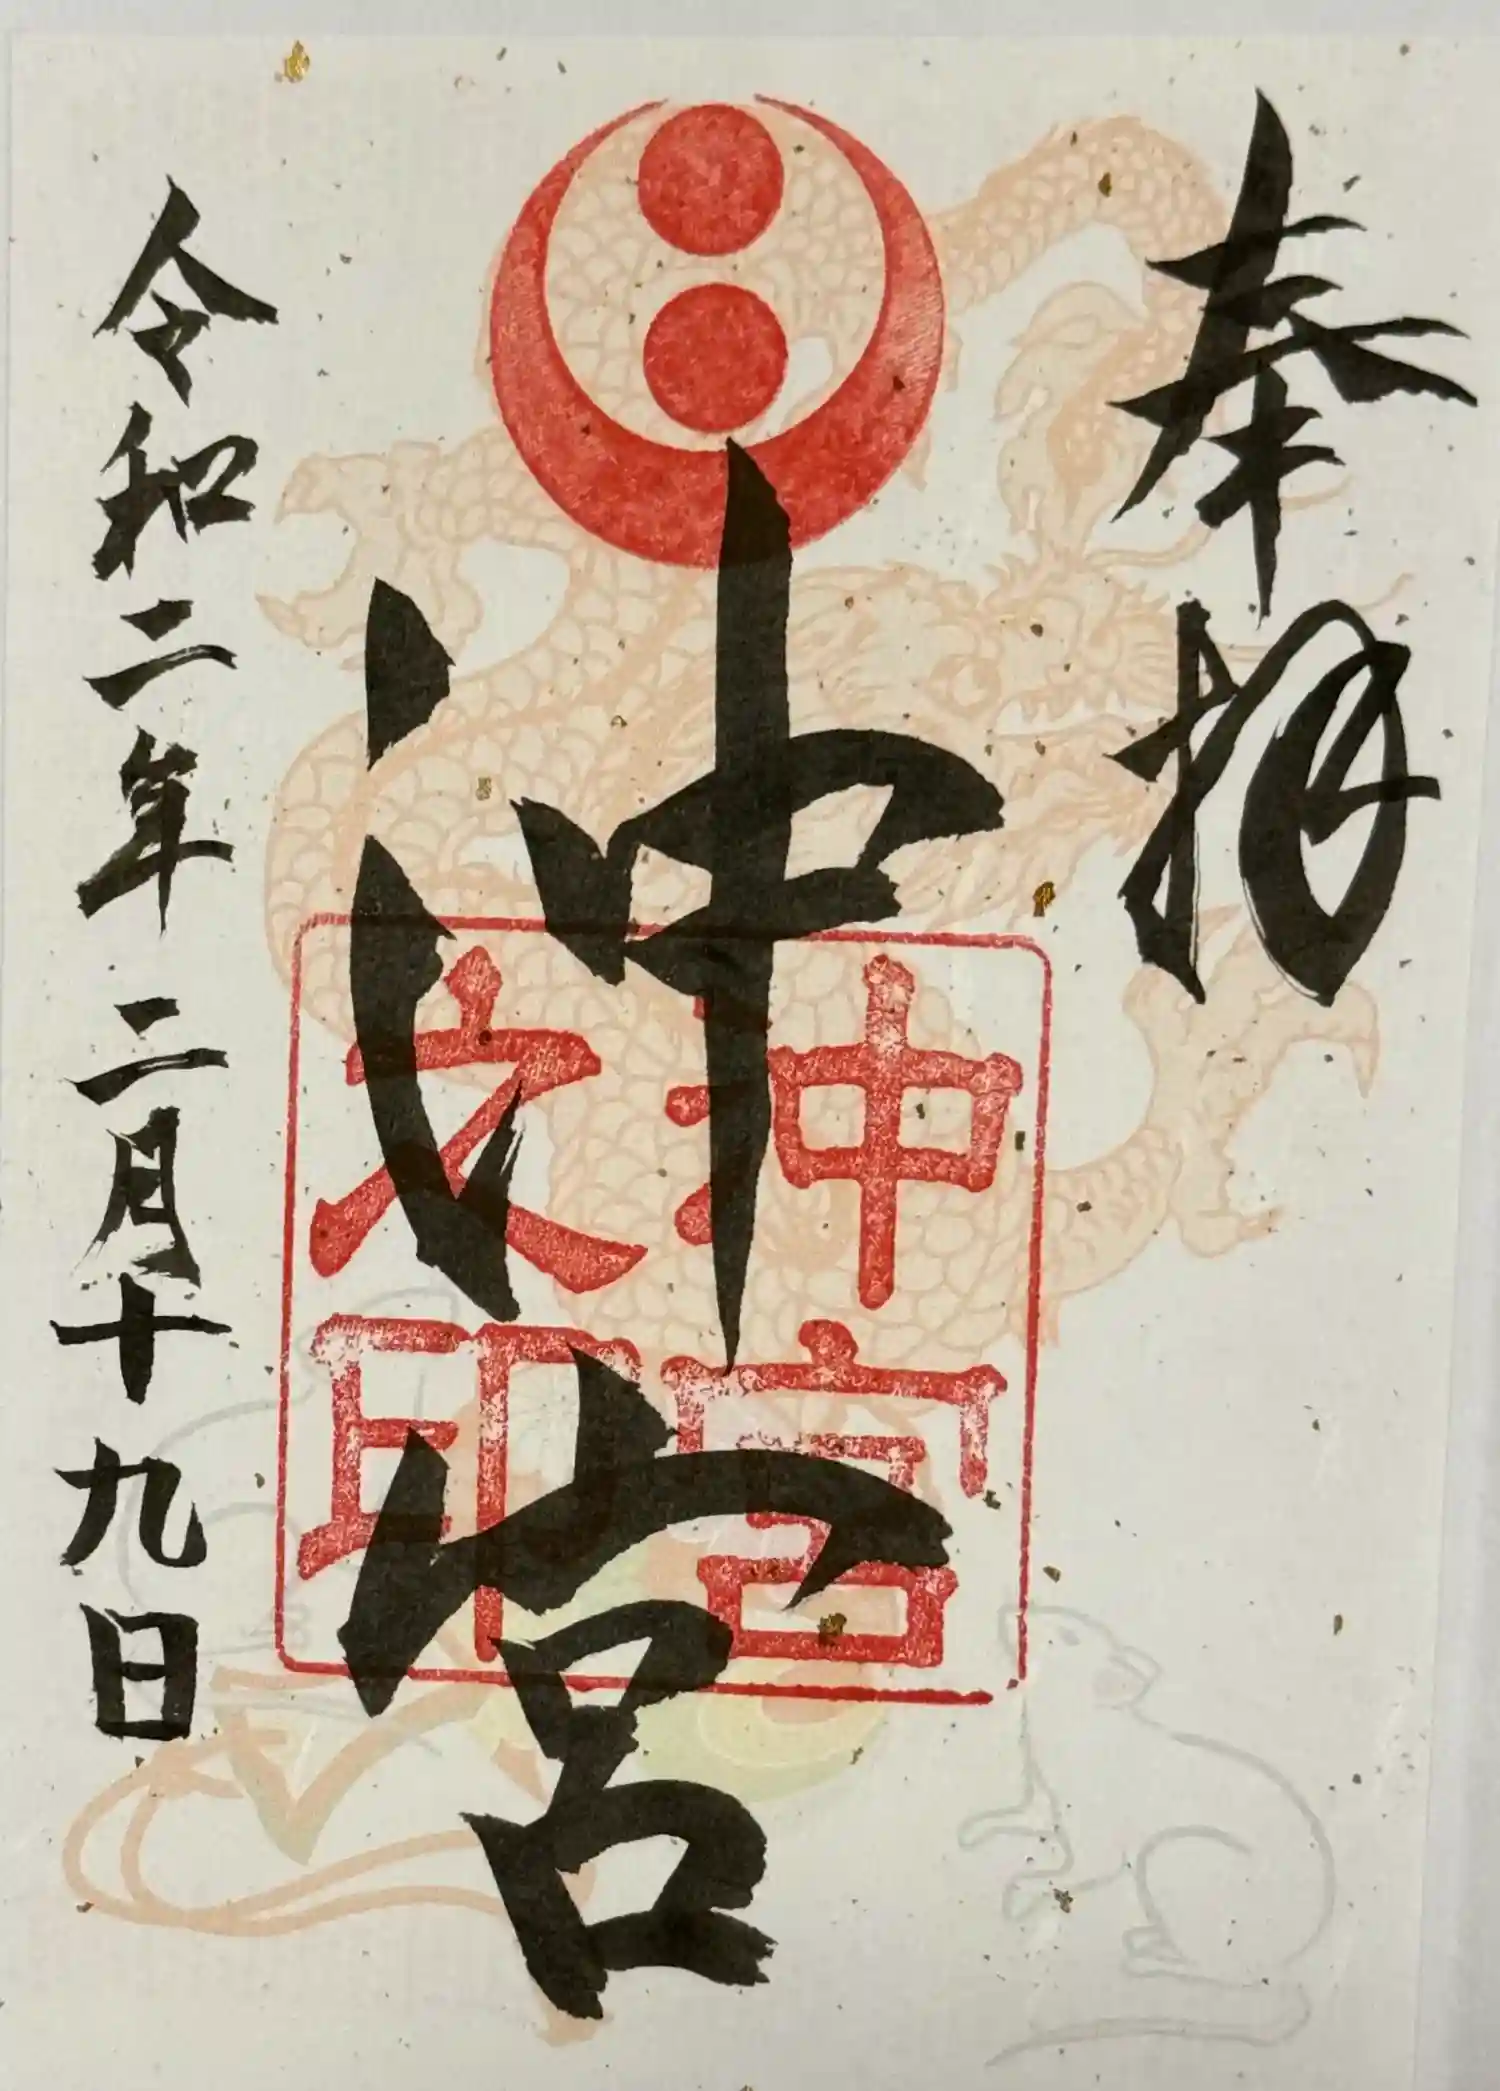 奉拝
沖宮
沖宮
之印
令和二年二月十九日